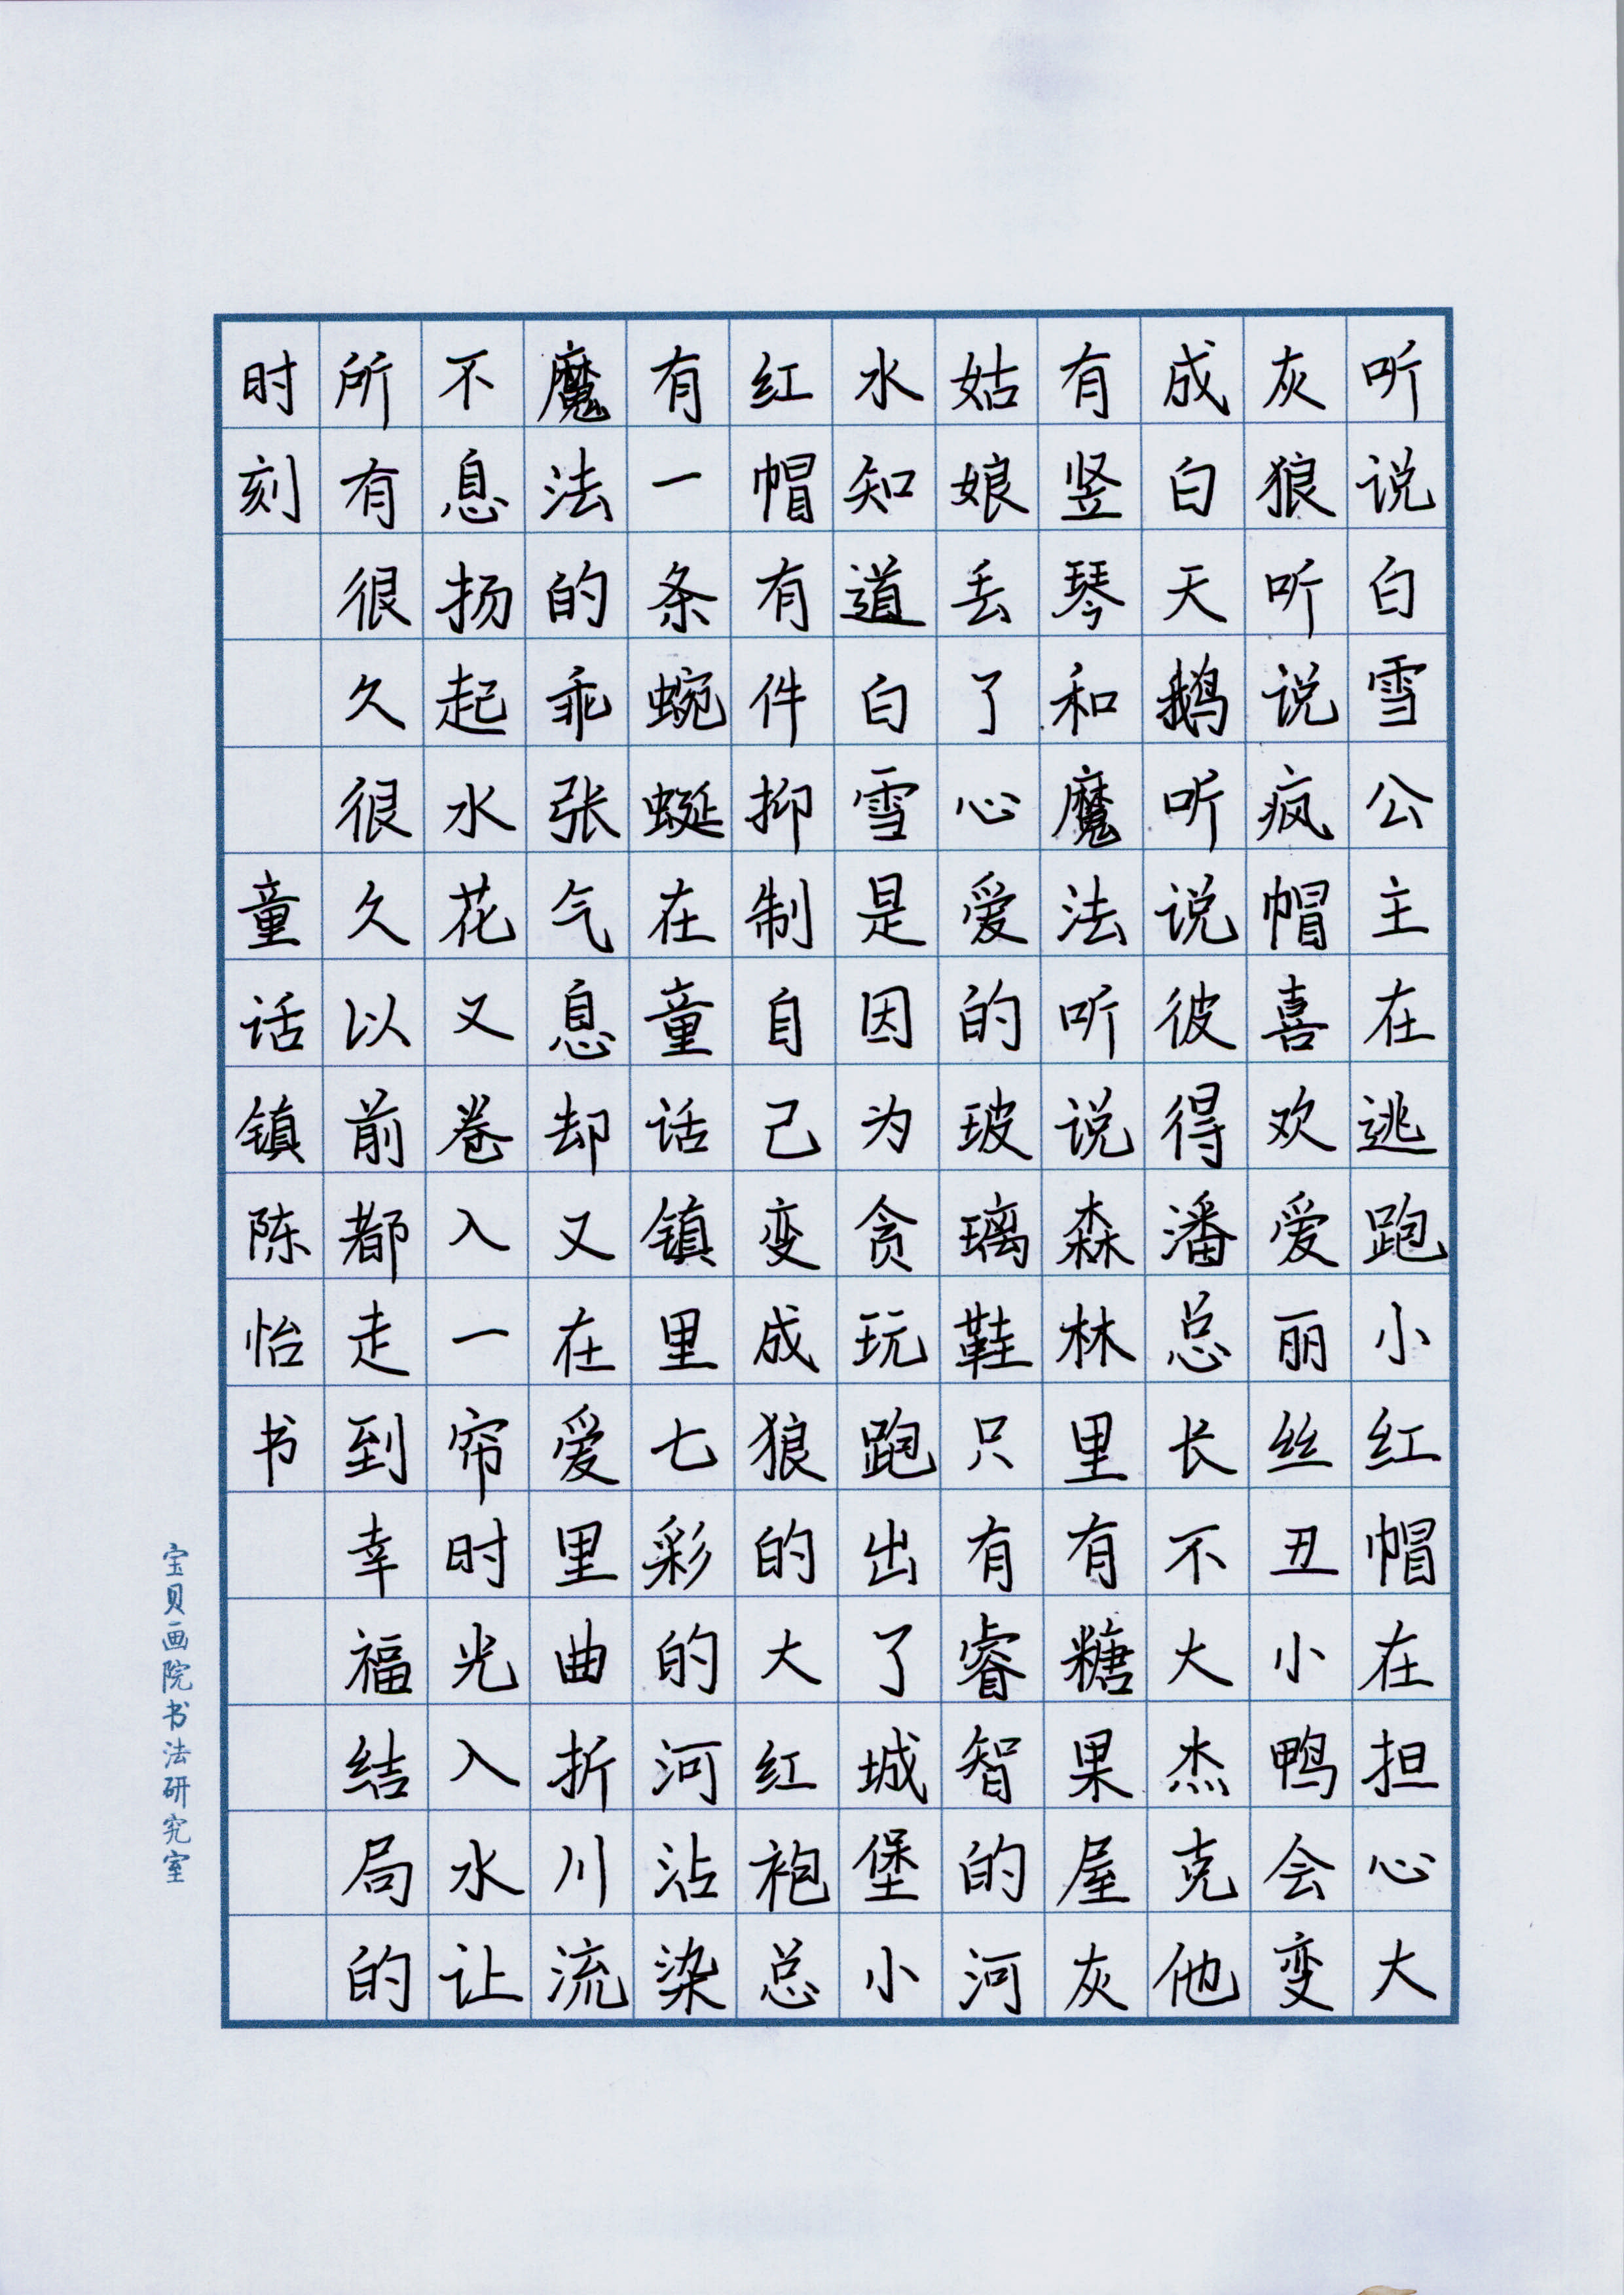 听说白雪公主在逃跑小红帽在担心大
灰狼听说疯帽喜欢爱丽丝丑小鸭会变
成白天鹅听说彼得潘总长不大杰克他
有竖琴和魔法听说森林里有糖果屋灰
姑娘丢了心爱的玻璃鞋只有睿智的河
水知道白雪是因为贪玩跑出了城堡小
红帽有件抑制自己变成狼的大红袍总
有一条蜿蜒在童话镇里七彩的河沾染
魔法的乖张气息却又在爱里曲折川流
不息扬起水花又卷入一帘时光入水让
所有很久很久以前都走到幸福结局的
时刻 童话镇陈怡书
宝贝画院书法研究室